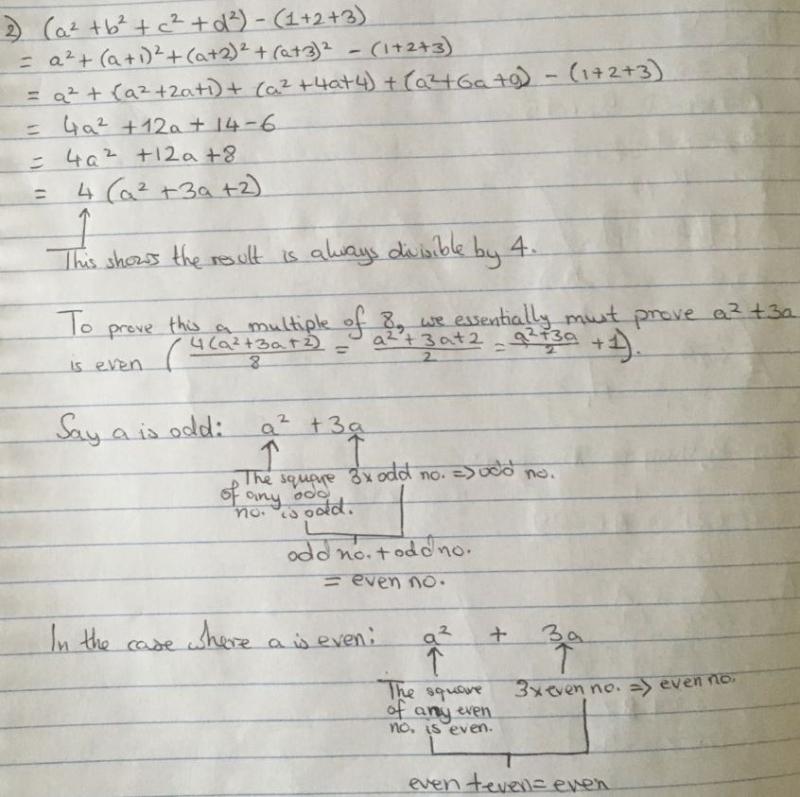 2) (a² + b² + c² + d²) - (1+2+3)
= a² + (a+1)² + (a+2)² + (a+3)² - (1+2+3)
= a² + (a²+2a+1) + (a²+4a+4) + (a²+6a+9) - (1+2+3)
= 4a² + 12a + 14 - 6
= 4a² + 12a + 8
= 4 (a² + 3a + 2)
This shows the result is always divisible by 4.
To prove this a multiple of 8, we essentially must prove a² + 3a
is even ( 4(a²+3a+2)/8 = a²+3a+2/2 = a²+3a/2 + 1).
Say a is odd: a² + 3a
The square 3 x odd no. => odd no.
of any odd
no. is odd.
odd no. + odd no.
= even no.
In the case where a is even: a² + 3a
The square 3 x even no. => even no.
of any even
no. is even.
even + even = even